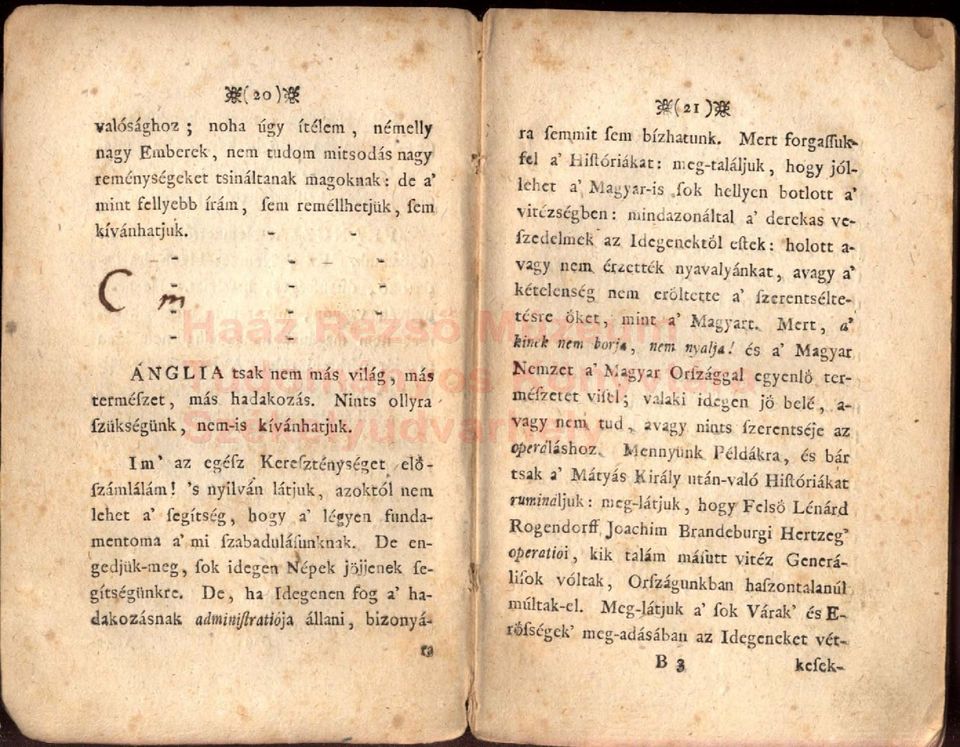 (20)
valósághoz ; noha úgy ítélem , némelly
nagy Emberek , nem tudom mitsodás nagy
reménységeket tsináltanak magoknak : de a'
mint fellyebb írám , ſem reméllhetjük , ſem
kívánhatjuk.
C m
ANGLIA tsak nem más világ , más
természet , más hadakozás. Nints ollyra
ſzükségünk , nem-is kívánhatjuk.
Im' az egéſz Kereſzténységet elő-
ſzámlálám! 's nyilván látjuk , azoktól nem
lehet a' ſegítség , hogy a' légyen funda-
mentoma a' mi ſzabaduláſunknak. De en-
gedjük-meg , ſok idegen Népek jöjjenek ſe-
gítségünkre. De , ha Idegenen fog a' ha-
dakozásnak adminiſtratiója állani , bizonyá-
ra
(21)
ra ſemmit ſem bízhatunk. Mert forgaſſuk-
fel a' Hiſtóriákat : meg-találjuk , hogy jól-
lehet a' Magyar-is ſok hellyen botlott a'
vitézségben : mindazonáltal a' derekas ve-
ſzedelmek az Idegenektől eſtek : holott a-
vagy nem érzették nyavalyánkat , avagy a'
kételenség nem eröltette a' ſzerentsélte-
tésre őket , mint a' Magyart. Mert , a'
kinek nem borja , nem nyalja! és a' Magyar
Nemzet a' Magyar Orſzággal egyenlő ter-
méſzetet viſel ; valaki idegen jő belé , a-
vagy nem tud , avagy nints ſzerentséje az
operáláshoz. Mennyünk Példákra , és bár
tsak a' Mátyás Király után-való Hiſtóriákat
ruminaljuk : meg-látjuk , hogy Felső Lénárd
Rogendorff Joachim Brandeburgi Hertzeg'
operatiói , kik talám máſutt vitéz Generá-
liſok vóltak , Orſzágunkban haſzontalanúl
múltak-el. Meg-látjuk a' ſok Várak' és E-
röſségek' meg-adásában az Idegeneket vét-
B 3 keſek-
Haáz Rezső Múzeum
Tudományos Könyvtára
Székelyudvarhely